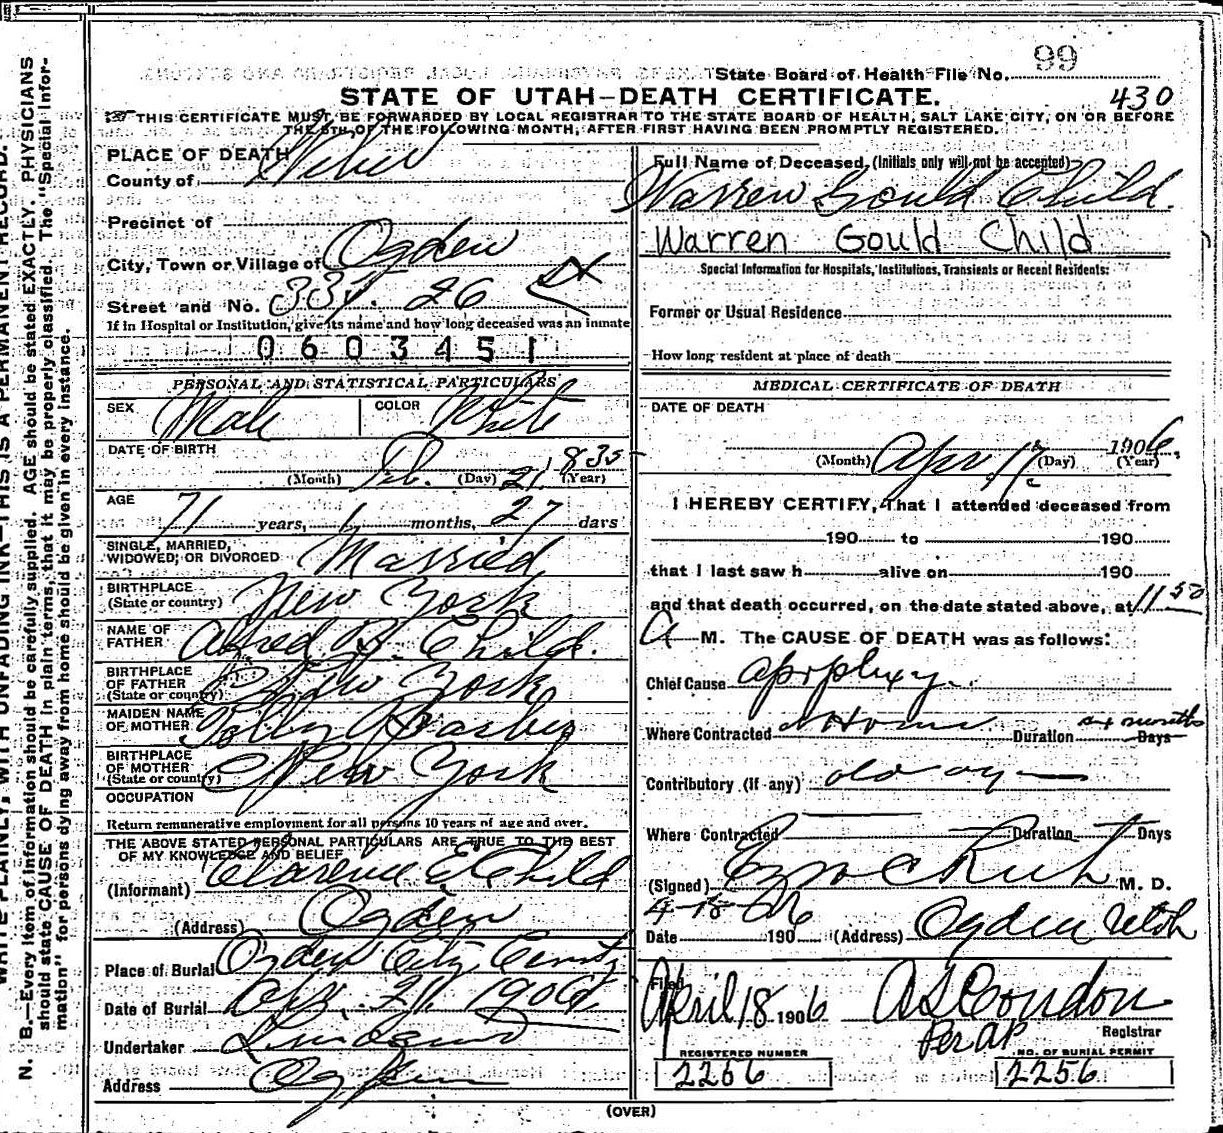 State Board of Health File No. 99
STATE OF UTAH—DEATH CERTIFICATE. 430
THIS CERTIFICATE MUST BE FORWARDED BY LOCAL REGISTRAR TO THE STATE BOARD OF HEALTH, SALT LAKE CITY, ON OR BEFORE
THE 5TH OF THE FOLLOWING MONTH, AFTER FIRST HAVING BEEN PROMPTLY REGISTERED.
N. B.—Every item of information should be carefully supplied. AGE should be stated EXACTLY. PHYSICIANS
should state CAUSE OF DEATH in plain terms, that it may be properly classified. The "Special Infor-
mation" for persons dying away from home should be given in every instance.
WRITE PLAINLY, WITH UNFADING INK—THIS IS A PERMANENT RECORD.
PLACE OF DEATH
County of Weber
Precinct of
City, Town or Village of Ogden
Street and No. 26
If in Hospital or Institution, give its name and how long deceased was an inmate
0603451
PERSONAL AND STATISTICAL PARTICULARS
SEX Male COLOR White
DATE OF BIRTH
(Month) Feb. (Day) 21 1835 (Year)
AGE 71 years, 1 months, 27 days
SINGLE, MARRIED,
WIDOWED, OR DIVORCED Married
BIRTHPLACE
(State or country) New York
NAME OF
FATHER Alfred B. Child.
BIRTHPLACE
OF FATHER
(State or country) New York
MAIDEN NAME
OF MOTHER Polly Barber
BIRTHPLACE
OF MOTHER
(State or country) New York
OCCUPATION
Return remunerative employment for all persons 10 years of age and over.
THE ABOVE STATED PERSONAL PARTICULARS ARE TRUE TO THE BEST
OF MY KNOWLEDGE AND BELIEF
(Informant) Clarence E Child
(Address) Ogden
Place of Burial Ogden City
Date of Burial Apr. 1906
Undertaker
Address Ogden
Full Name of Deceased, (Initials only will not be accepted)
Warren Gould Child.
Warren Gould Child
Special Information for Hospitals, Institutions, Transients or Recent Residents:
Former or Usual Residence
How long resident at place of death
MEDICAL CERTIFICATE OF DEATH
DATE OF DEATH
(Month) Apr 17 (Day) 1906. (Year)
I HEREBY CERTIFY, That I attended deceased from
190 to 190
that I last saw h alive on 190
and that death occurred, on the date stated above, at 11 50
A M. The CAUSE OF DEATH was as follows:
Chief Cause
Where Contracted at Home Duration months Days
Contributory (if any) old age
Where Contracted Duration Days
(Signed) Ezra C Rich M. D.
4-18 06
Date 190 (Address) Ogden Utah
Filed
April 18 1906 A S Condon
Per AP Registrar
REGISTERED NUMBER NO. OF BURIAL PERMIT
2256 2256
(OVER)